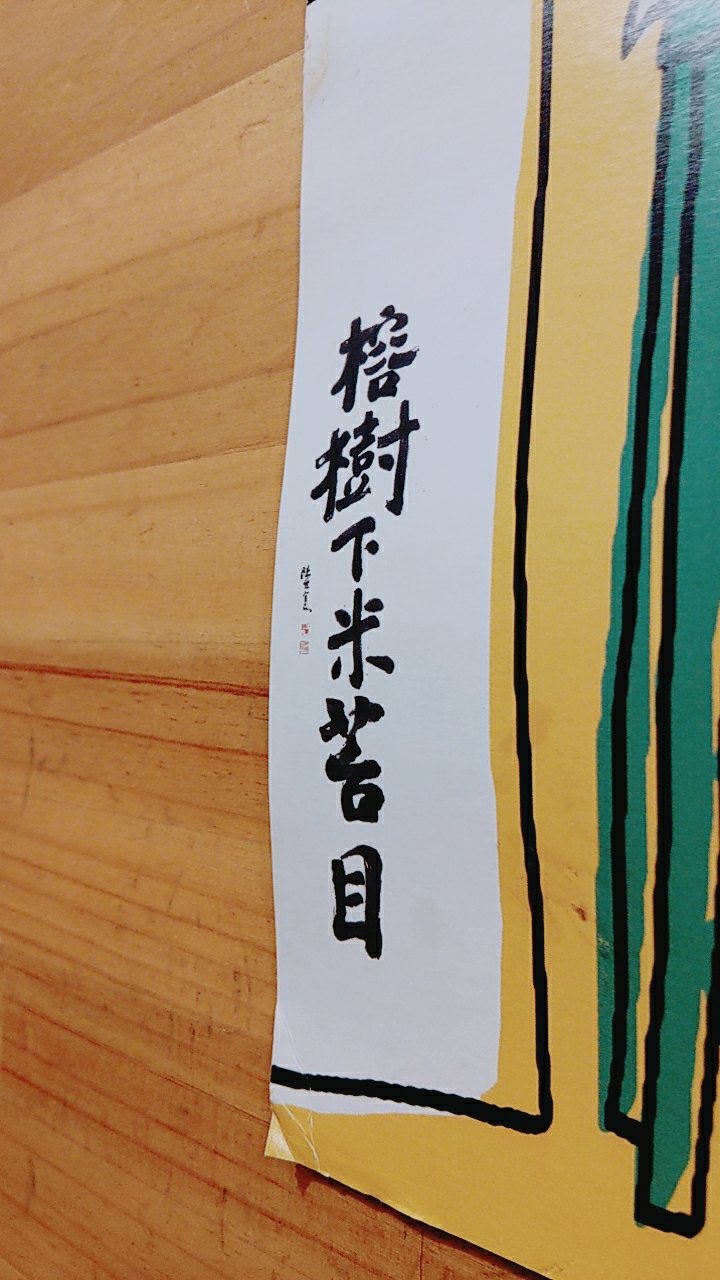 榕樹下米苔目